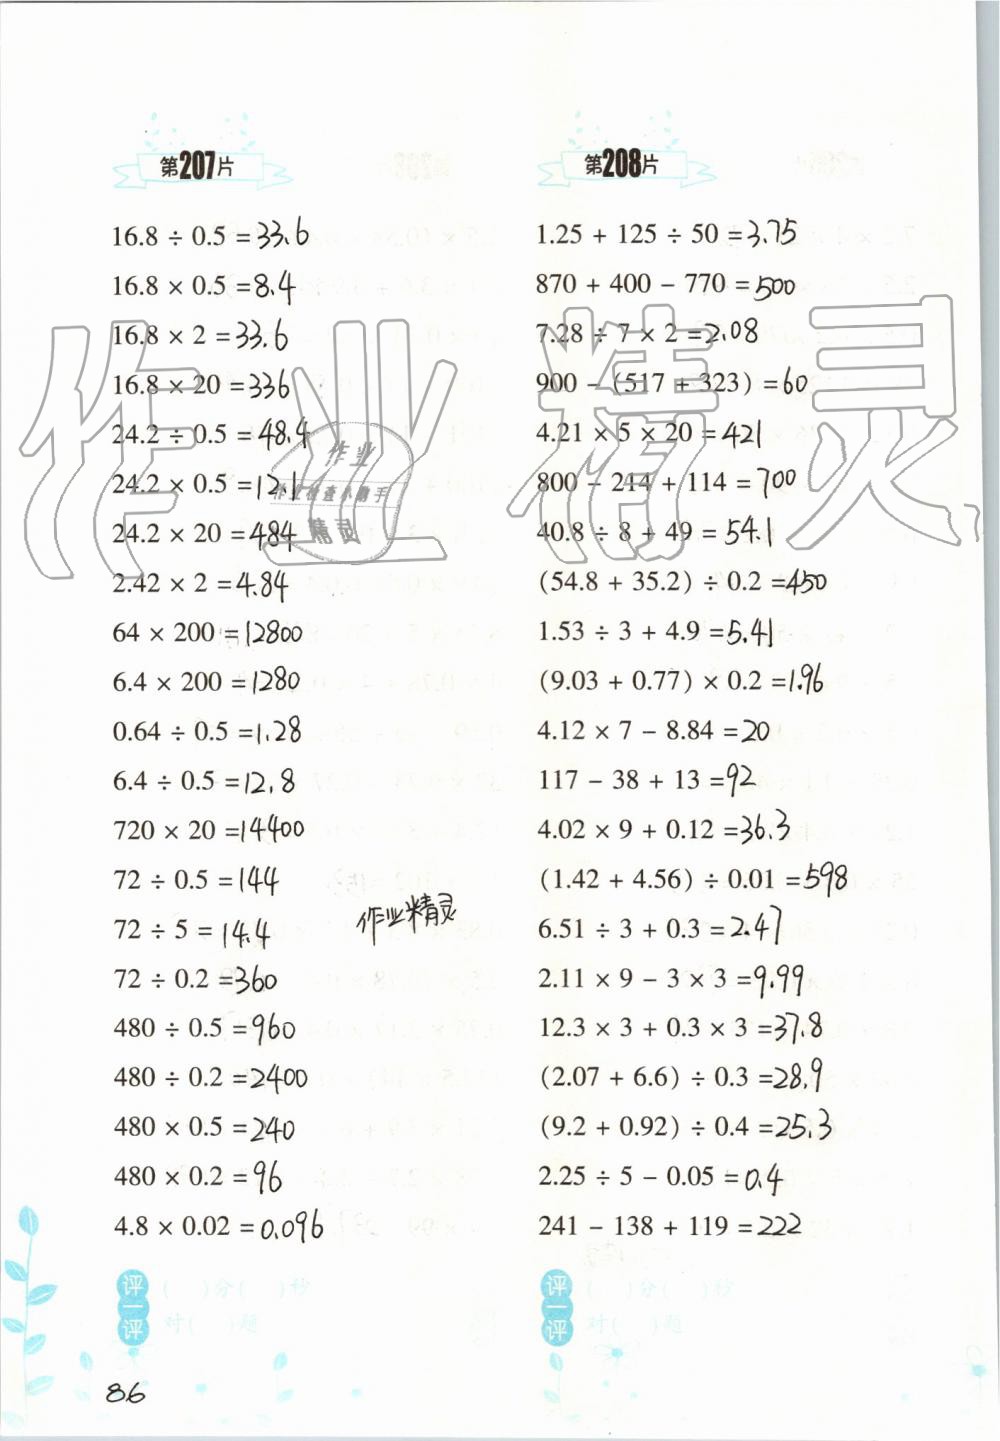 第207片
16.8 ÷ 0.5 = 33.6
16.8 × 0.5 = 8.4
16.8 × 2 = 33.6
16.8 × 20 = 336
24.2 ÷ 0.5 = 48.4
24.2 × 0.5 = 12.1
24.2 × 20 = 484
2.42 × 2 = 4.84
64 × 200 = 12800
6.4 × 200 = 1280
0.64 ÷ 0.5 = 1.28
6.4 ÷ 0.5 = 12.8
720 × 20 = 14400
72 ÷ 0.5 = 144
72 ÷ 5 = 14.4
72 ÷ 0.2 = 360
480 ÷ 0.5 = 960
480 ÷ 0.2 = 2400
480 × 0.5 = 240
480 × 0.2 = 96
4.8 × 0.02 = 0.096
评一评
(  )分(  )秒
对(  )题
第208片
1.25 + 125 ÷ 50 = 3.75
870 + 400 − 770 = 500
7.28 ÷ 7 × 2 = 2.08
900 − (517 + 323) = 60
4.21 × 5 × 20 = 421
800 − 214 + 114 = 700
40.8 ÷ 8 + 49 = 54.1
(54.8 + 35.2) ÷ 0.2 = 450
1.53 ÷ 3 + 4.9 = 5.41
(9.03 + 0.77) × 0.2 = 1.96
4.12 × 7 − 8.84 = 20
117 − 38 + 13 = 92
4.02 × 9 + 0.12 = 36.3
(1.42 + 4.56) ÷ 0.01 = 598
6.51 ÷ 3 + 0.3 = 2.47
2.11 × 9 − 3 × 3 = 9.99
12.3 × 3 + 0.3 × 3 = 37.8
(2.07 + 6.6) ÷ 0.3 = 28.9
(9.2 + 0.92) ÷ 0.4 = 25.3
2.25 ÷ 5 − 0.05 = 0.4
241 − 138 + 119 = 222
评一评
(  )分(  )秒
对(  )题
作业精灵
作业
作业检查小助手
精灵
作业精灵
86